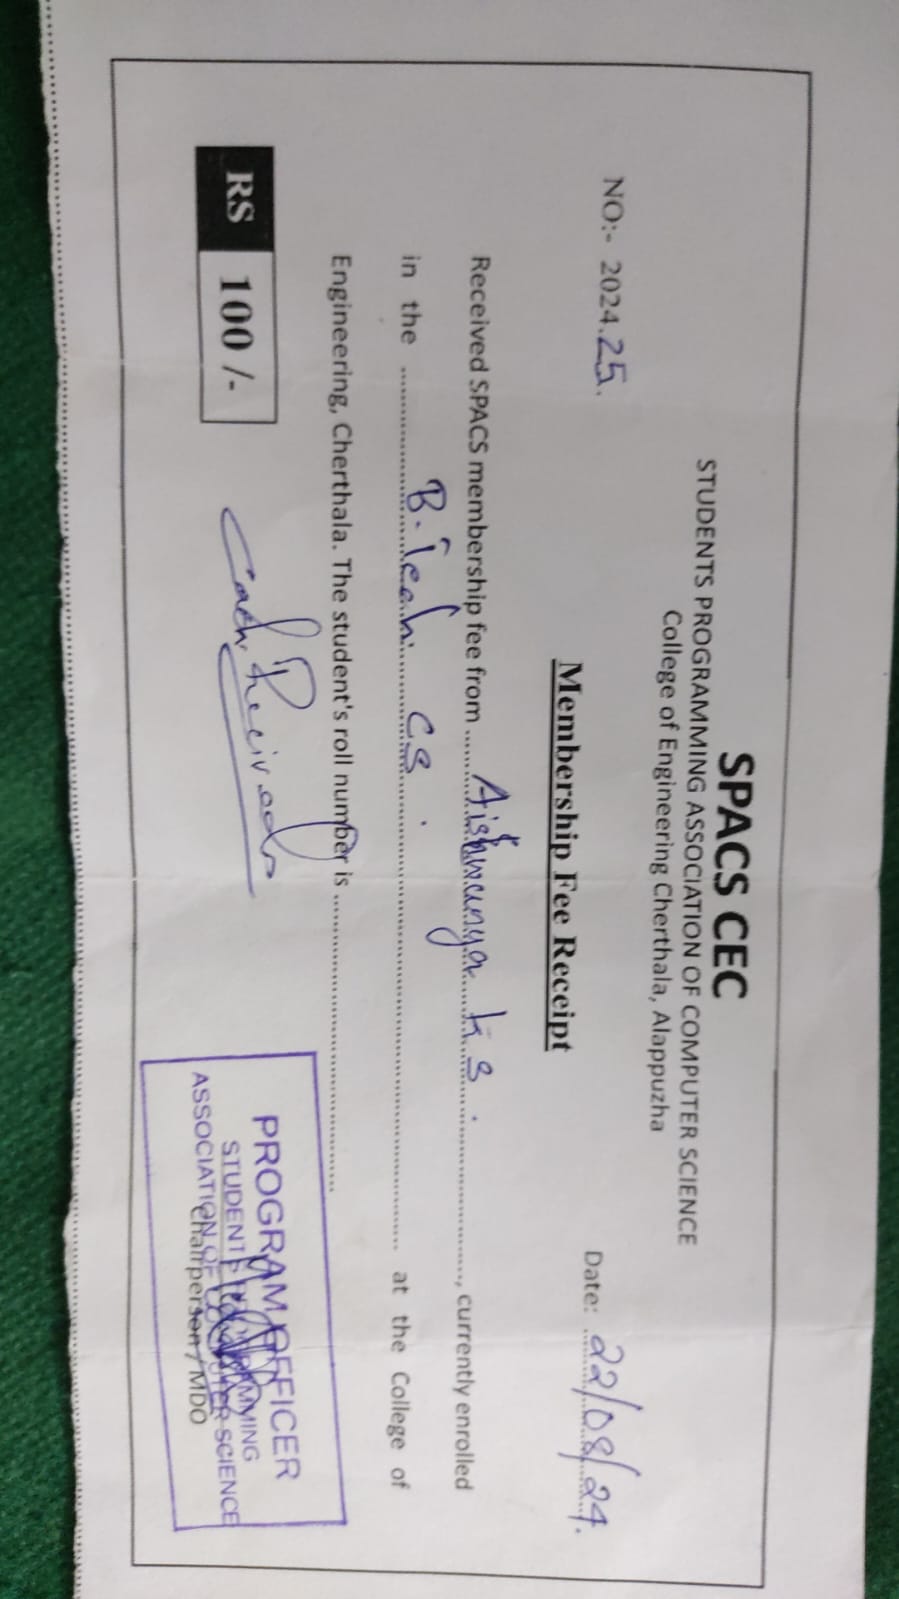 SPACS CEC
STUDENTS PROGRAMMING ASSOCIATION OF COMPUTER SCIENCE
College of Engineering Cherthala, Alappuzha
NO:- 2024.25. Date: 22/08/24.
Membership Fee Receipt
Received SPACS membership fee from Aishwarya K S., currently enrolled
in the B.Tech CS. at the College of
Engineering, Cherthala. The student's roll number is
RS 100 /-
Cash Received
PROGRAM OFFICER
STUDENT PROGRAMMING
ASSOCIATION OF COMPUTER SCIENCE
Chairperson / MDO